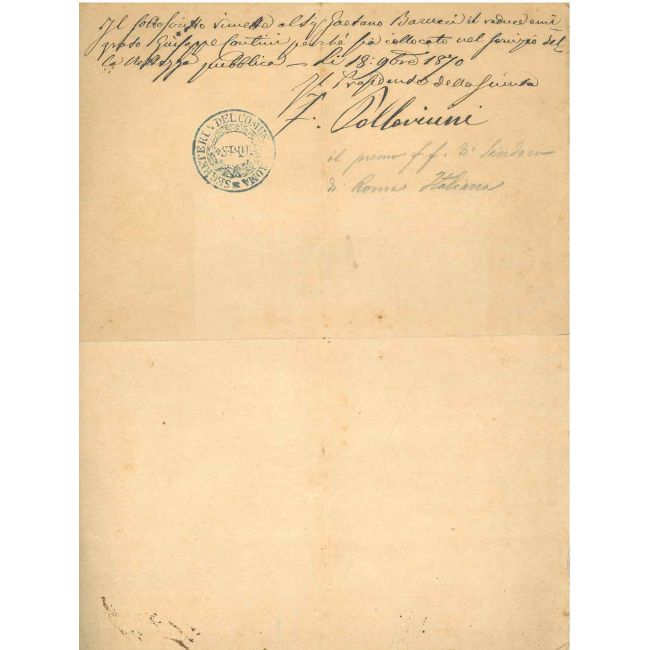 Il Sottoscritto rimette al Sig Gaetano Barucci il reduce emi-
grato Giuseppe Contini perché sia collocato nel servizio del-
la Nettezza pubblica — Li 18: 9bre 1870
Il Presidente della Giunta
F. Pallavicini
il primo f.f. di Sindaco
di Roma Italiana
SEGRETERIA DEL COMUNE ROMA
S·P·Q·R